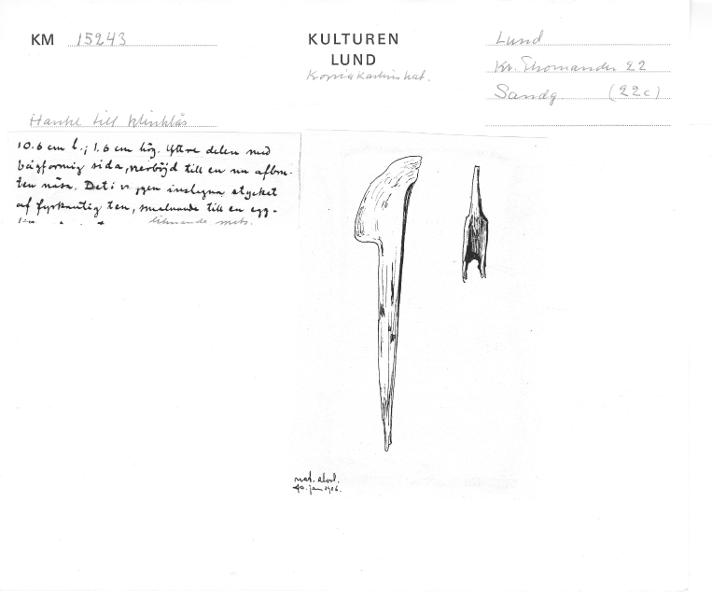 KM 15243
KULTUREN
LUND
Lund
Kv. Thomander 22
Sandg. (22c)
Hanke till klinklås
10.6 cm l.; 1.6 cm hög. Yttre delen med
bågformig sida, nerböjd till en nu afbru-
ten näsa. Det i väggen inslagna stycket
af fyrkantig ten, smalnande till en egg-
liknande
nat. storl.
jan 1906.